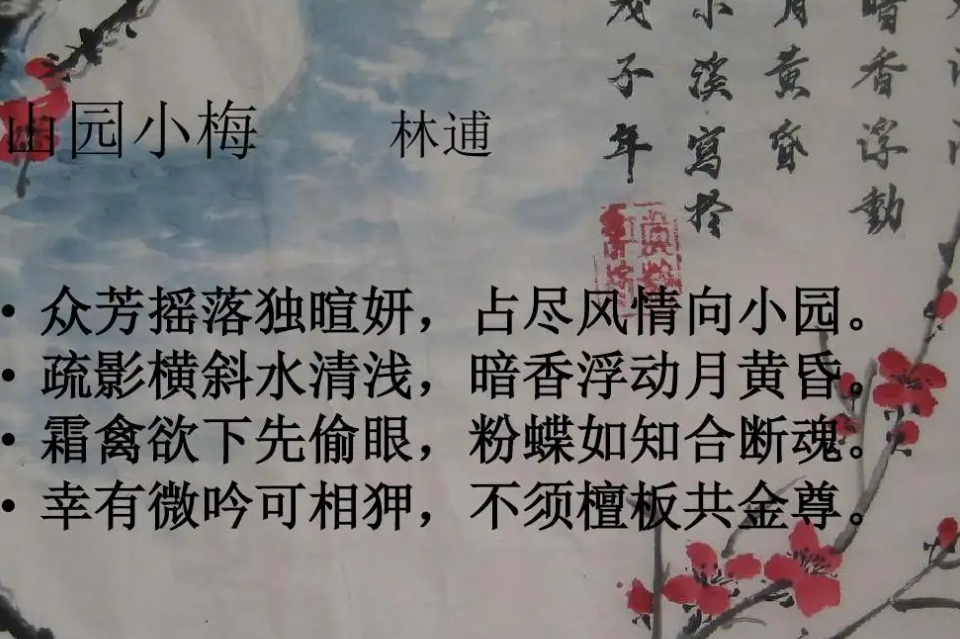 山园小梅 林逋
• 众芳摇落独暄妍，占尽风情向小园。
• 疏影横斜水清浅，暗香浮动月黄昏。
• 霜禽欲下先偷眼，粉蝶如知合断魂。
• 幸有微吟可相狎，不须檀板共金尊。
暗香浮動
月黄昏
小溪寫於
戊子年